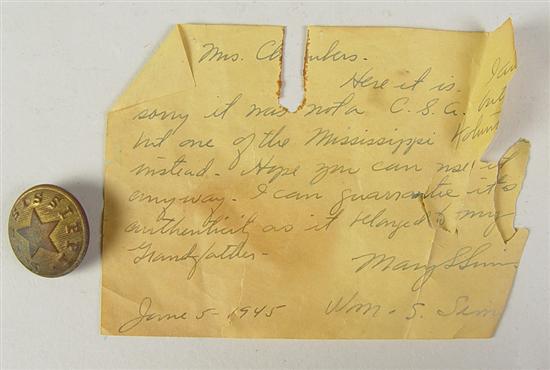 SISSIPP
Mrs. Ch mbers.
Here it is. I am
sorry it was not a C.S.A. but
but one of the Mississippi Volunt
instead. Hope you can use it
anyway. I can guarantee it's
authenticity as it belonged to my
Grandfather-
Mary S Sim
June 5-1945 Wm. S. Sim